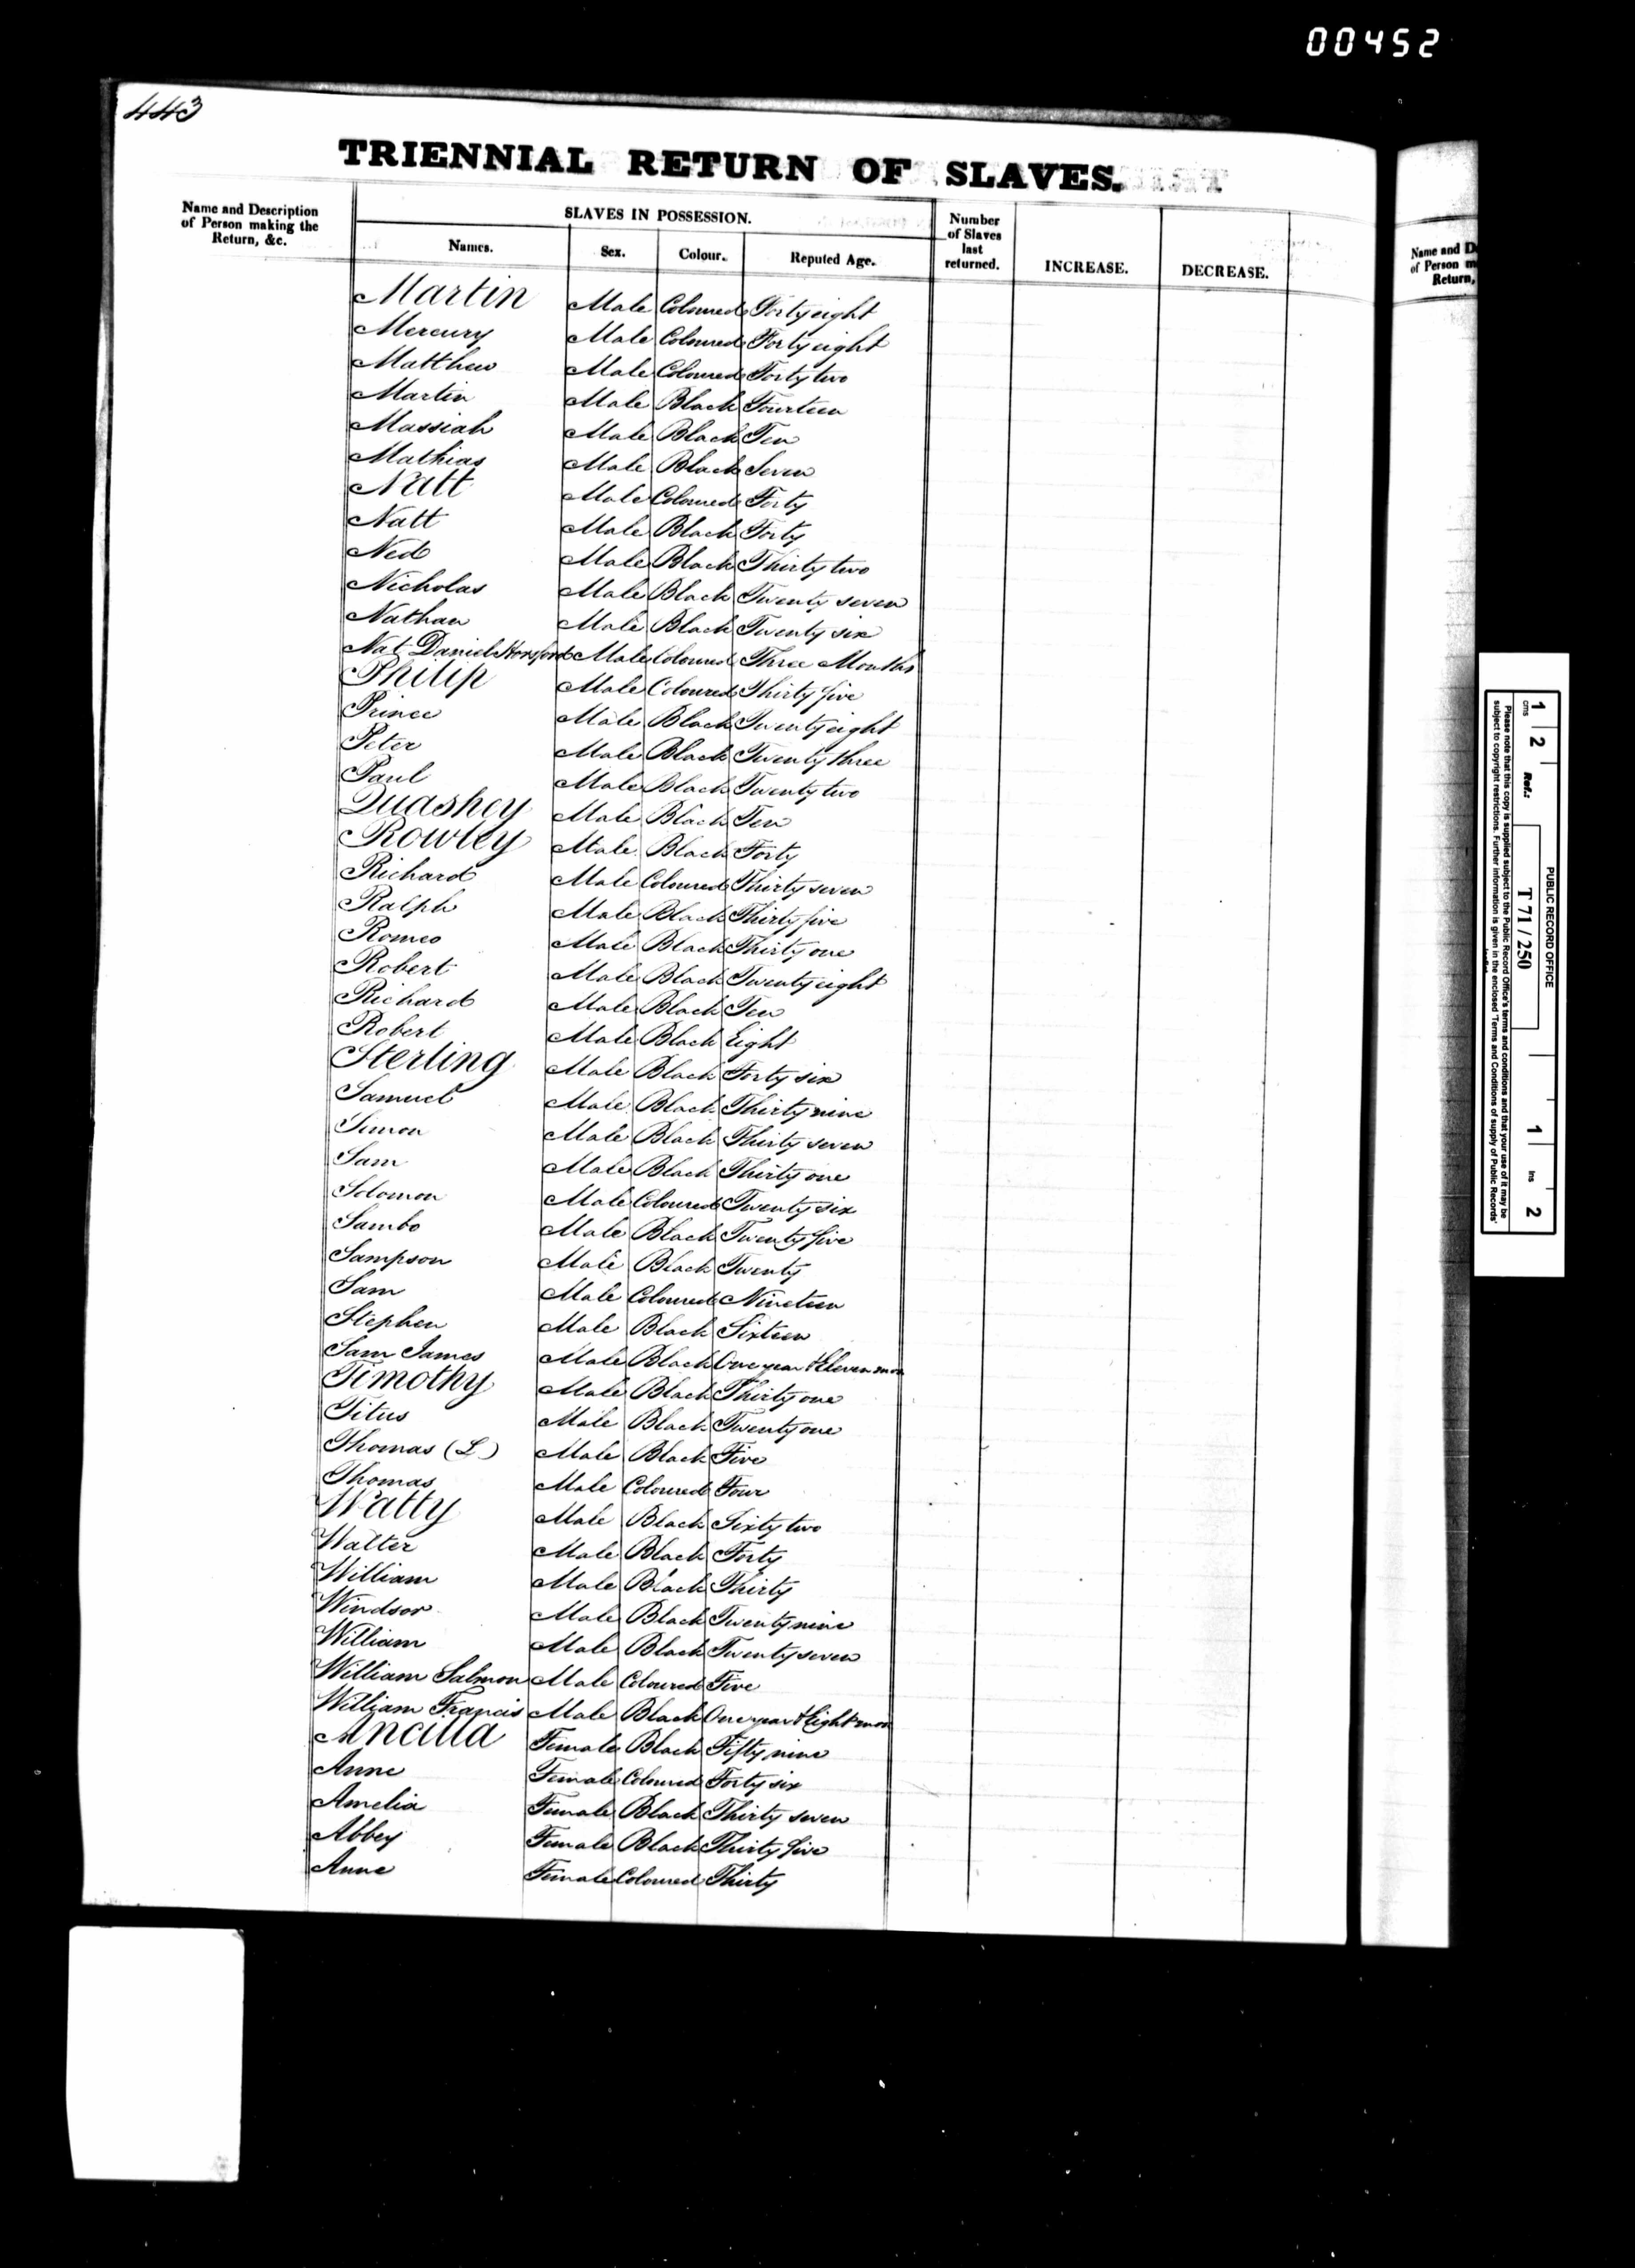 00452
443
TRIENNIAL RETURN OF SLAVES.
Name and Description
of Person making the
Return, &c.
SLAVES IN POSSESSION.
Names.
Sex.
Colour.
Reputed Age.
Number
of Slaves
last
returned.
INCREASE.
DECREASE.
Martin Male Coloured Forty eight
Mercury Male Coloured Forty eight
Matthew Male Coloured Forty two
Martin Male Black Fourteen
Massiah Male Black Ten
Mathias Male Black Seven
Natt Male Coloured Forty
Natt Male Black Forty
Ned Male Black Thirty two
Nicholas Male Black Twenty seven
Nathan Male Black Twenty six
Nat Daniel Horsford Male Coloured Three Months
Philip Male Coloured Thirty five
Prince Male Black Twenty eight
Peter Male Black Twenty three
Paul Male Black Twenty two
Quashey Male Black Ten
Rowley Male Black Forty
Richard Male Coloured Thirty seven
Ralph Male Black Thirty five
Romeo Male Black Thirty one
Robert Male Black Twenty eight
Richard Male Black Ten
Robert Male Black Eight
Sterling Male Black Forty six
Samuel Male Black Thirty nine
Simon Male Black Thirty seven
Sam Male Black Thirty one
Solomon Male Coloured Twenty six
Sambo Male Black Twenty five
Sampson Male Black Twenty
Sam Male Coloured Nineteen
Stephen Male Black Sixteen
Sam James Male Black One year & Eleven mon
Timothy Male Black Thirty one
Titus Male Black Twenty one
Thomas (L) Male Black Five
Thomas Male Coloured Four
Watty Male Black Sixty two
Walter Male Black Forty
William Male Black Thirty
Windsor Male Black Twenty nine
William Male Black Twenty seven
William Salmon Male Coloured Five
William Francis Male Black One year & Eight mon
Ancilla Female Black Fifty nine
Anne Female Coloured Forty six
Amelia Female Black Thirty seven
Abbey Female Black Thirty five
Anne Female Coloured Thirty
Name and D
of Person m
Return,
PUBLIC RECORD OFFICE
1 2 1 2
cms Ref.: T 71 / 250 ins
Please note that this copy is supplied subject to the Public Record Office's terms and conditions and that your use of it may be
subject to copyright restrictions. Further information is given in the enclosed 'Terms and Conditions of supply of Public Records'